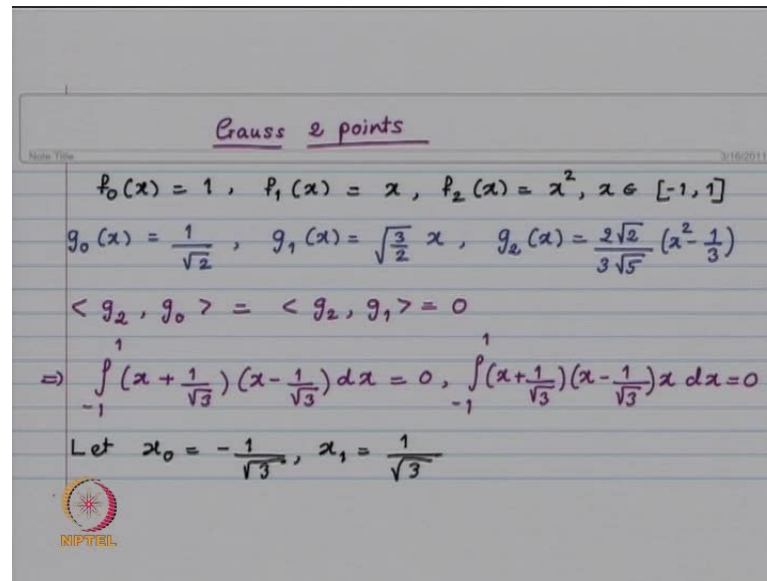 Gauss 2 points
Note Title
3/16/2011
f₀(x) = 1 , f₁(x) = x , f₂(x) = x², x ∈ [-1, 1]
g₀(x) = 1/√2 , g₁(x) = √(3/2) x , g₂(x) = 2√2/(3√5) (x² - 1/3)
< g₂ , g₀ > = < g₂ , g₁ > = 0
⇒ ∫₋₁¹ (x + 1/√3) (x - 1/√3) dx = 0 , ∫₋₁¹ (x + 1/√3) (x - 1/√3) x dx = 0
Let x₀ = - 1/√3 , x₁ = 1/√3
NPTEL